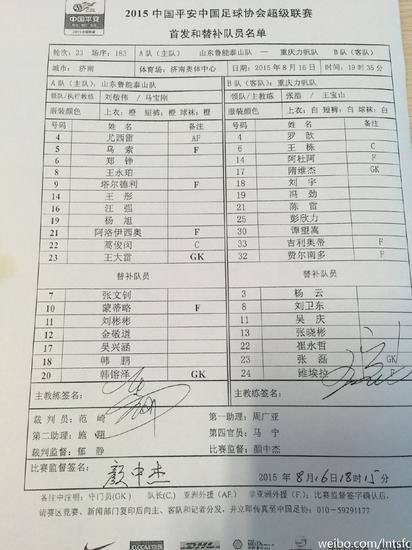 中国平安
2015 中国平安中国足球协会超级联赛
首发和替补队员名单
轮次: 23 场序: 183 A 队 (主队): 山东鲁能泰山队 —— 重庆力帆队 B 队 (客队)
城市: 济南 体育场: 济南奥体中心 日期: 2015 年 8 月 16 日 时间: 19 时 35 分
A 队 (主队): 山东鲁能泰山队 B 队 (客队): 重庆力帆队
领队/执行教练 刘敬伟 / 马宝刚 领队/主教练 张浩 / 王宝山
服装颜色 上衣: 橙 短裤: 橙 球袜: 橙 服装颜色 上衣: 白 短裤: 白 球袜: 白
号码 姓 名 备注 号码 姓 名 备注
4 尤西雷 AF 4 罗歆
5 乌索 F 6 王栋 C
6 郑铮 14 阿杜阿 F
8 王永珀 17 隋维杰 GK
9 塔尔德利 F 18 刘宇
14 王彤 19 冯劲
16 汪强 21 陈雷
19 杨旭 25 彭欣力
21 阿洛伊西奥 F 30 谭望嵩
22 蒿俊闵 C 33 吉利奥蒂 F
23 王大雷 GK 32 费尔南多 F
替补队员 替补队员
7 张文钊 3 杨云
10 蒙蒂略 F 8 刘卫东
11 刘彬彬 11 吴庆
12 金敬道 13 张晓彬
17 吴兴涵 22 崔永哲
18 韩鹏 23 张磊 GK
20 韩镕泽 GK 24 锥埃拉
主教练签名 主教练签名
裁判员: 范崎 第一助理: 周广亚
第二助理: 施翔 第四官员: 马宁
裁判监督: 郁静 比赛监督: 颜中杰
比赛监督签名 颜中杰 2015 年 8 月 16 日 18 时 15 分
备注中注明: 守门员(GK) 队长(C) 亚洲外援 (AF) 非亚洲外援 (F); 比赛监督签字确认后,
请赛区竞赛、新闻部门复印后向主、客队和记者分发, 并立即传真至中国足协: 010-59291177
weibo.com/lntsfc